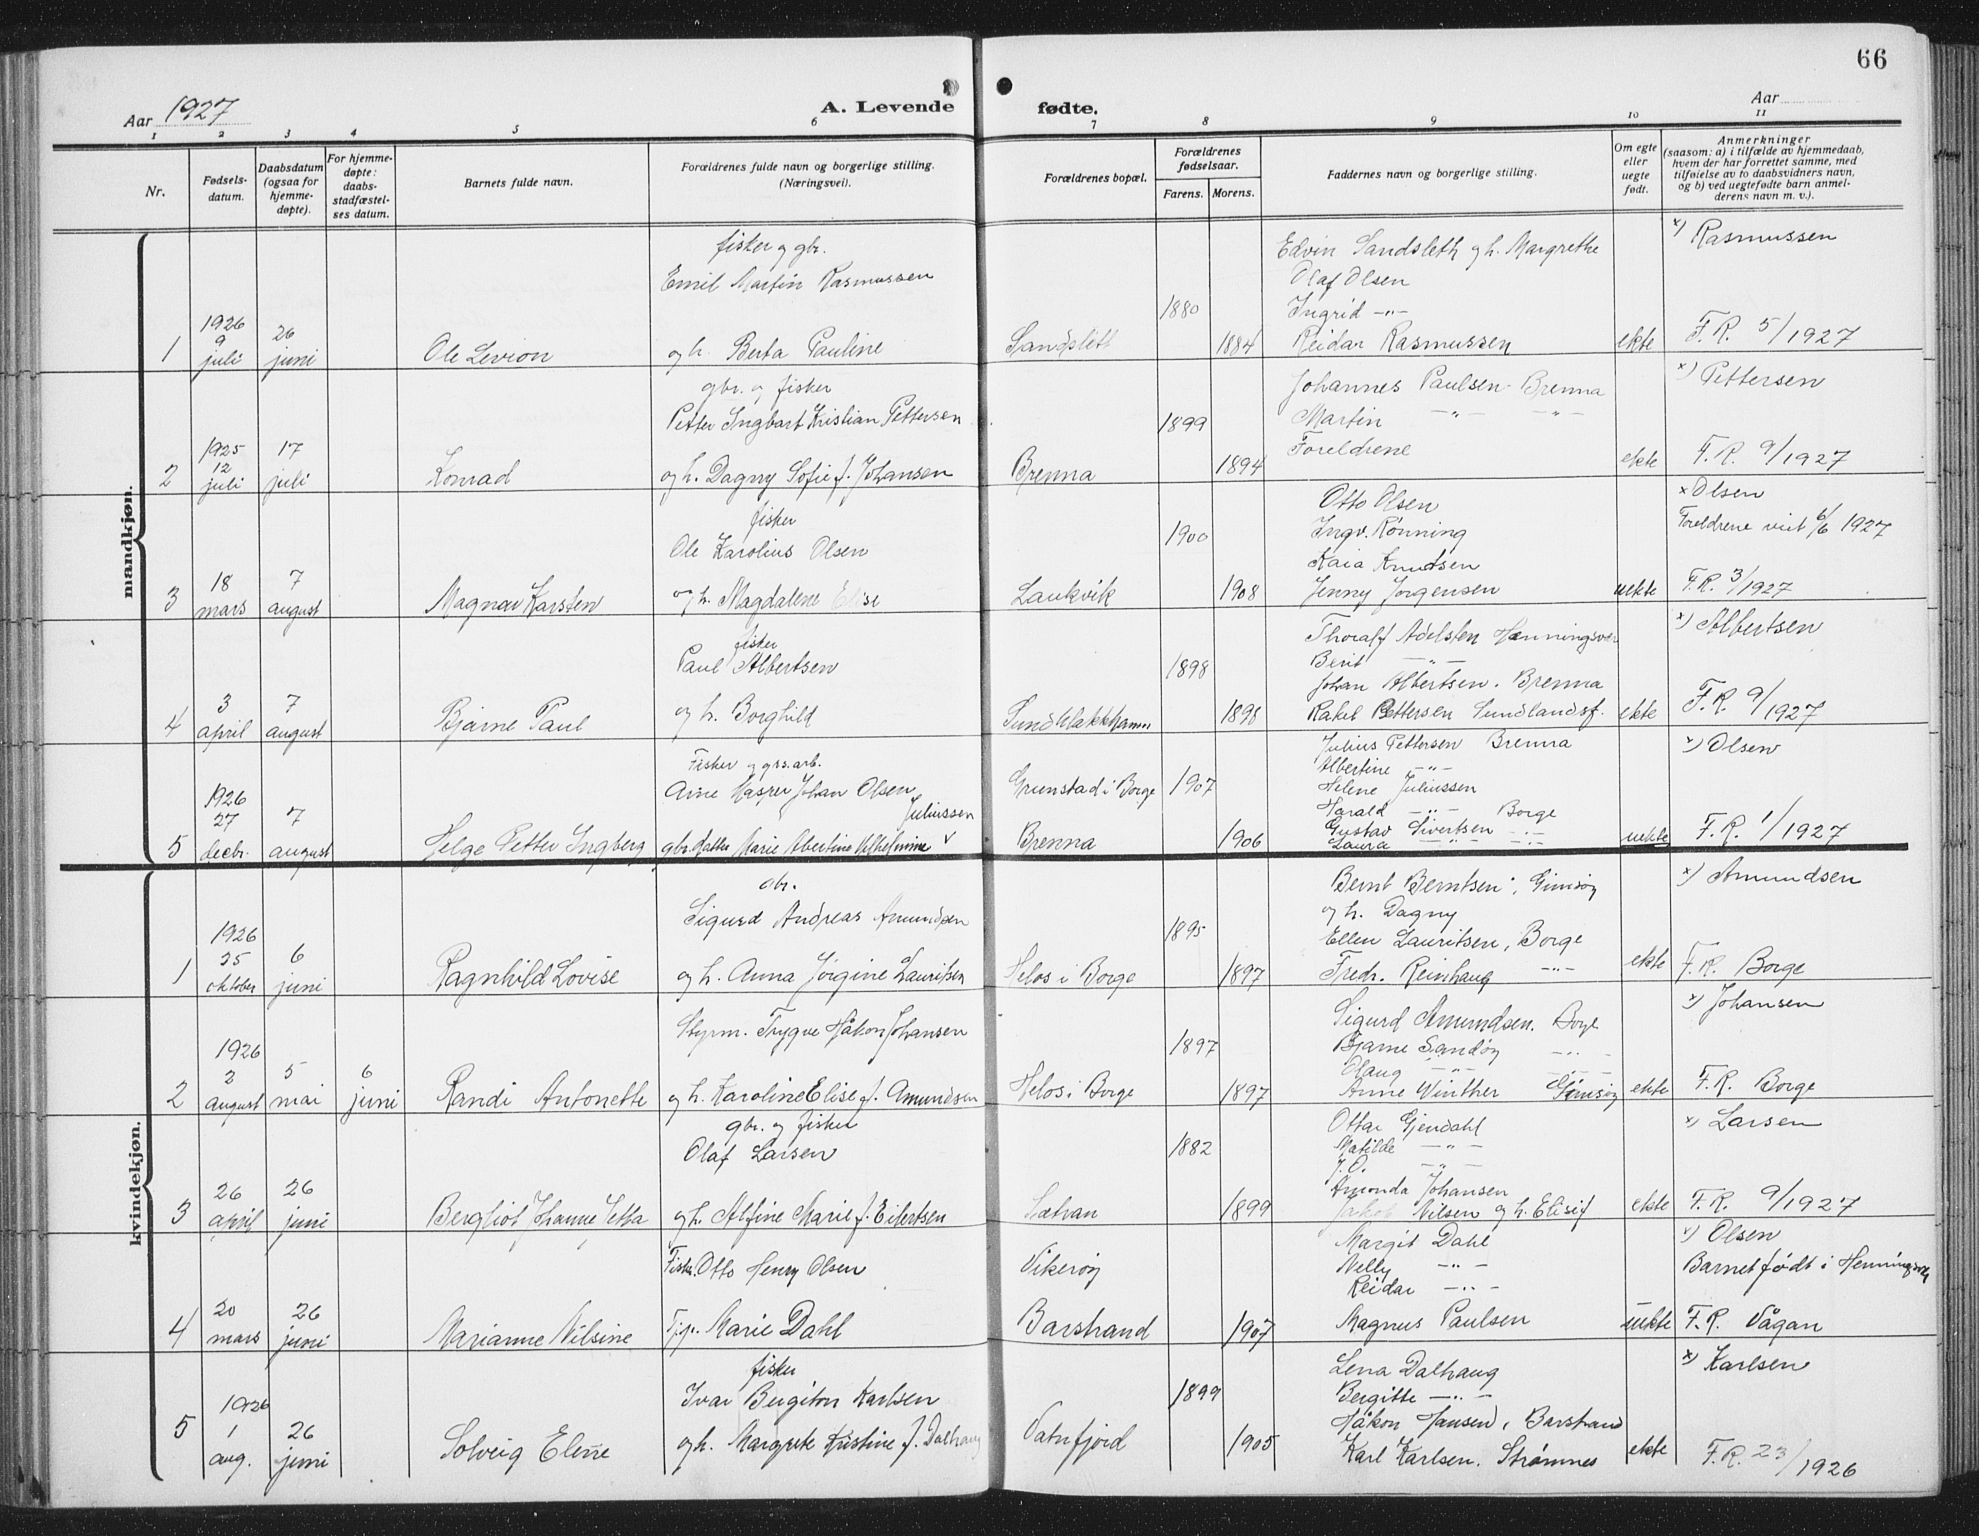 66
Aar 1927
A. Levende fødte.
Aar
1 2 3 4 5 6 7 8 9 10 11
Nr.
Fødsels-
datum.
Daabsdatum
(ogsaa for
hjemme-
døpte).
For hjemme-
døpte:
daabs-
stadfæstel-
ses datum.
Barnets fulde navn.
Forældrenes fulde navn og borgerlige stilling.
(Næringsvei).
Forældrenes bopæl.
Forældrenes
fødselsaar.
Farens. Morens.
Faddernes navn og borgerlige stilling.
Om egte
eller
uegte
født.
Anmerkninger
(saasom: a) i tilfælde av hjemmedaab,
hvem der har forrettet samme, med
tilføielse av to daabsvidners navn,
og b) ved uegtefødte barn anmel-
derens navn m. v.).
mandkjøn.
1
1926
9
juli
26
juni
Ole Levion
fisker og gbr.
Emil Martin Rasmussen
og h. Berta Pauline
Sandslett
1880
1884
Edvin Sandsleth og h. Margrethe
Olaf Olsen
Ingrid -"-
Reidar Rasmussen
ekte
x) Rasmussen
F.R. 5/1927
2
1925
12
juli
17
juli
Konrad
gbr. og fisker
Petter Ingbart Kristian Pettersen
og h. Dagny Sofie f. Johansen
Brenna
1899
1894
Johannes Paulsen Brenna
Martin -"- -"-
Foreldrene
ekte
x) Pettersen
F.R. 9/1927
3
18
mars
7
august
Magnar Karsten
fisker
Ole Karolius Olsen
og h. Magdalene Elise
Laukvik
1900
1908
Otto Olsen
Ingv. Rønning
Kaia Knutsen
Jenny Jørgensen
uekte
x Olsen
Foreldrene viet 6/6 1927
F.R. 3/1927
4
3
april
7
august
Bjarne Paul
fisker
Paul Albertsen
og h. Borghild
Sundklakkhamn
1898
1898
Thoralf Adelsten Henningsver
Berit -"-
Johan Albertsen. Brenna
Rakel Pettersen Sundlandsf.
ekte
x) Albertsen
F.R. 9/1927
5
1926
27
decbr.
7
august
Helge Petter Ingberg
Fisker og grs.arb.
Arne Kasper Johan Olsen
Juliussen
gbr.datter Marie Abertine Vilhelmine v
Grunstad i Borge
Brenna
1907
1906
Julius Pettersen Brenna
Albertine -"-
Helene Juliussen
Harald -"- Borge
Gustav Sivertsen -"-
Laura -"- -"-
uekte
x) Olsen
F.R. 1/1927
kvindekjøn.
1
1926
25
oktober
6
juni
Ragnhild Lovise
gbr.
Sigurd Andreas Amundsen
og h. Anna Jørgine Lauritsen
Helos i Borge
1895
1897
Bernt Berntsen, Gimsøy
og h. Dagny
Ellen Lauritsen, Borge
Fredr. Reinhaug -"-
ekte
x) Amundsen
F.R. Borge
2
1926
2
august
5
mai
6
juni
Randi Antonette
Styrm. Trygve Håkon Johansen
og h. Karoline Elise f. Amundsen
Helos i Borge
1897
1897
Sigurd Amundsen. Borge
Bjarne Sandøy -"-
Olaug -"- -"-
Anne Winther Gimsøy
ekte
x) Johansen
F.R. Borge
3
26
april
26
juni
Bergliot Johanne Jetta
gbr. og fisker
Olaf Larsen
og h. Alfine Marie f. Eilertsen
Sætran
1882
1899
Ottar Gjendahl
Matilde -"-
J.O. -"-
Amonda Johansen
Jakob Nilsen og h. Elisif
ekte
x) Larsen
F.R. 9/1927
4
20
mars
26
juni
Marianne Nilsine
Fisker. Otto Henry Olsen
Tjp. Marie Dahl
Vikerøy
Barstrand
1907
Margit Dahl
Nelly -"-
Reidar -"-
Magnus Paulsen
uekte
x) Olsen
Barnet født i Henningsvær
F.R. Vågan
5
1926
1
aug.
26
juni
Solveig Elene
fisker
Ivar Bergiton Karlsen
og h. Margrete Kristine f. Dalhaug
Vatnfjord
1899
1905
Lena Dalhaug
Bergitte -"-
Håkon Hansen, Barstrand
Karl Karlsen. Strømnes
ekte
x) Karlsen
F.R. 23/1926